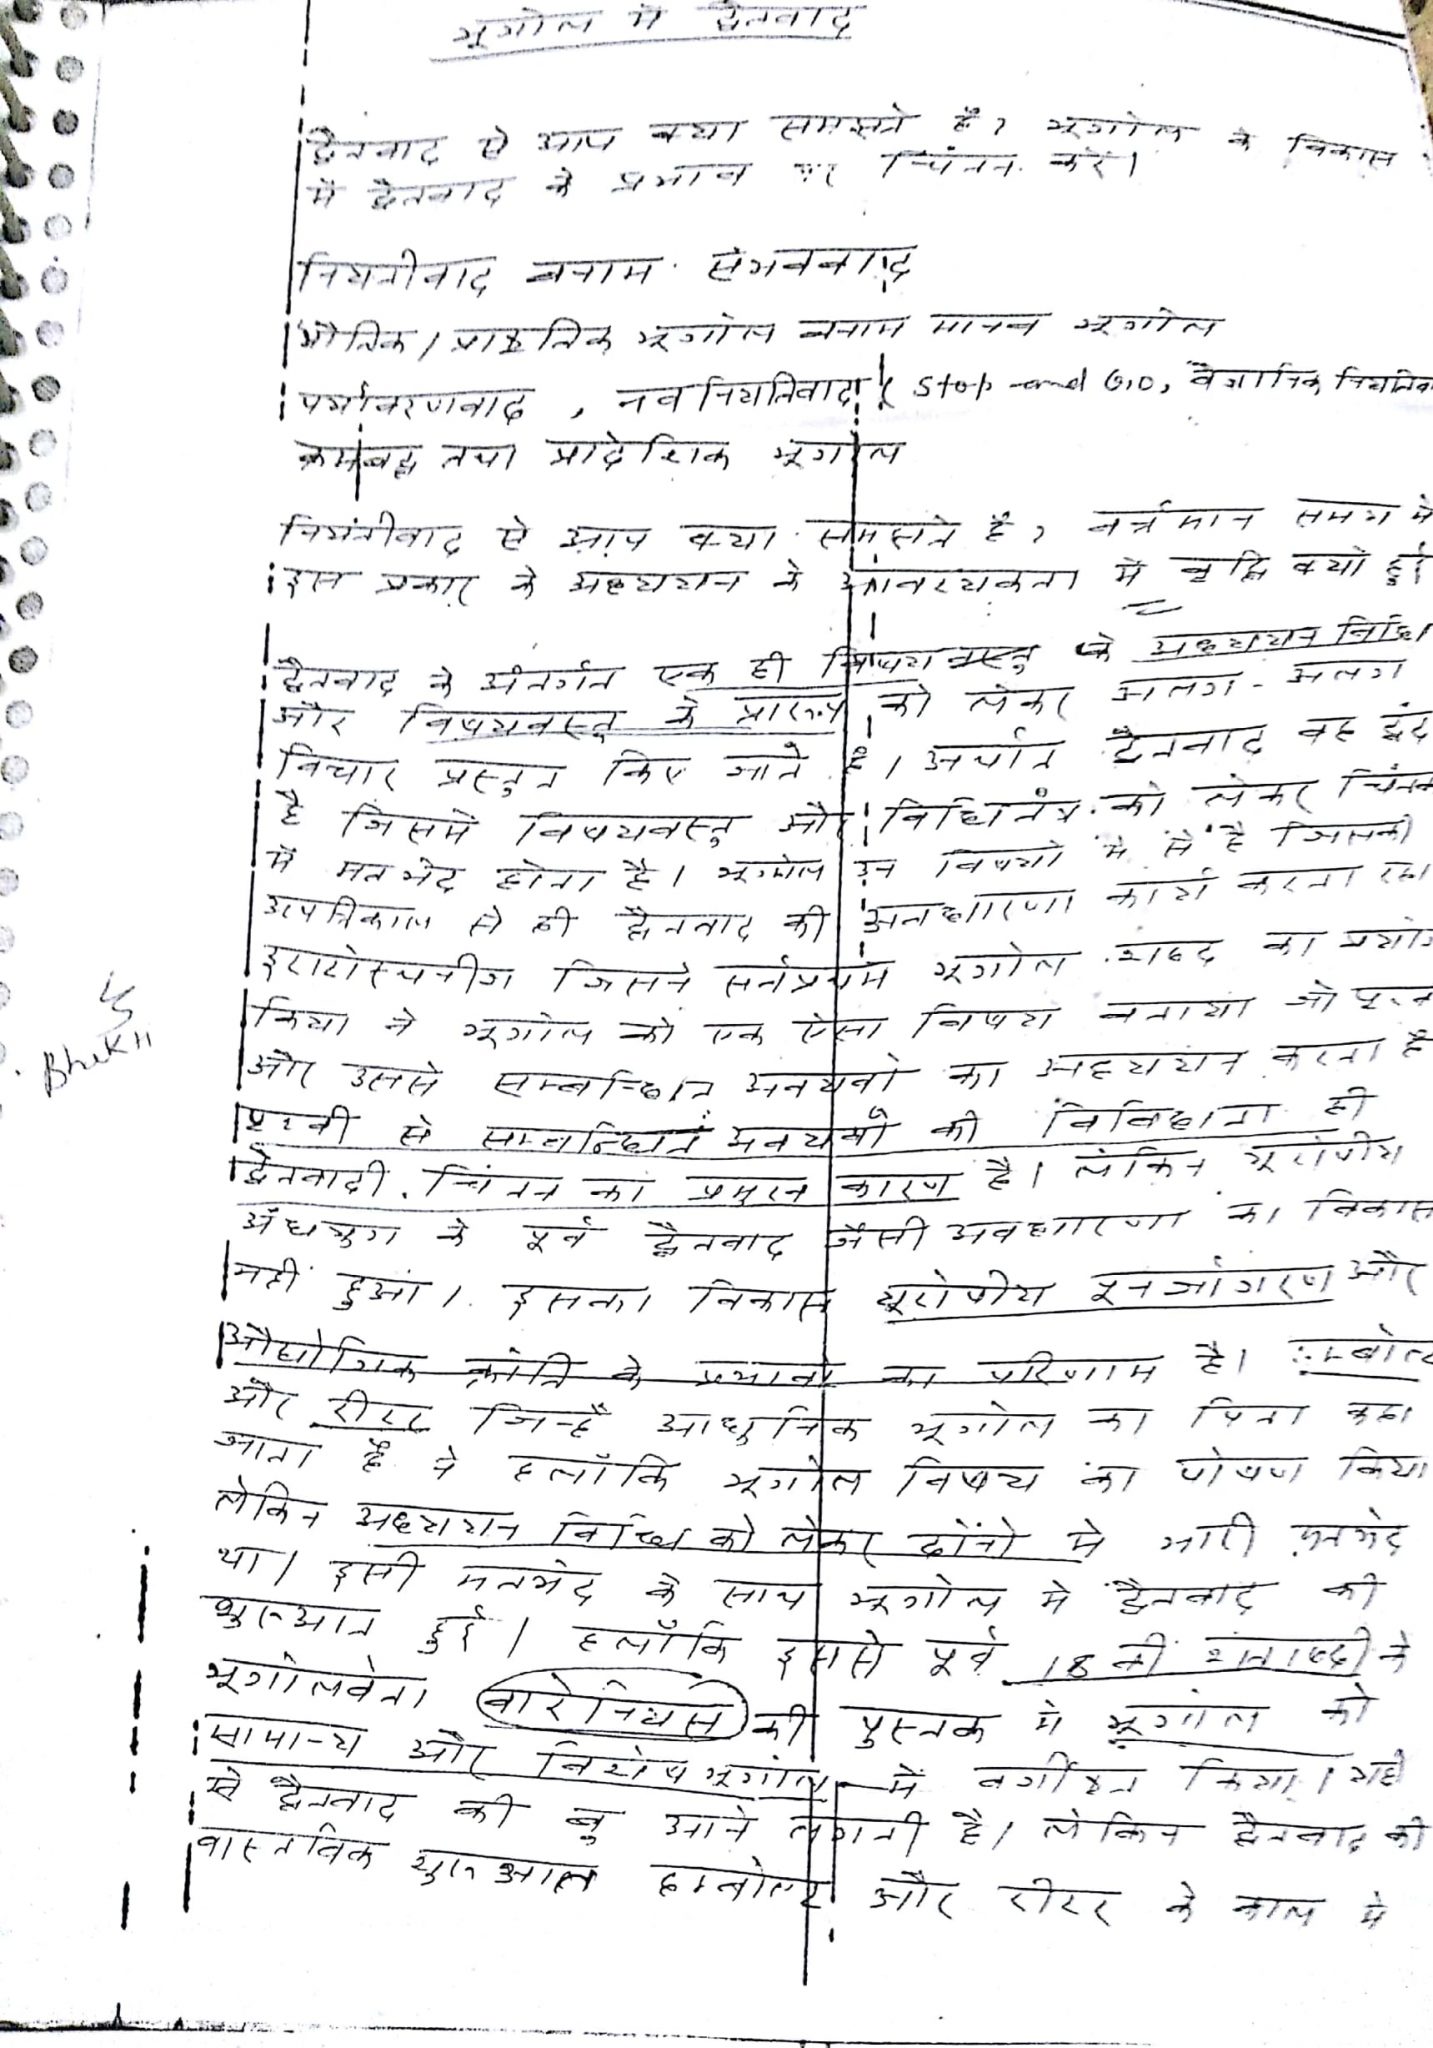 भूगोल में द्वैतवाद
द्वैतवाद से आप क्या समझते हैं? भूगोल के विकास
में द्वैतवाद के प्रभाव पर चिंतन करें।
नियतीवाद बनाम संभववाद
भौतिक/प्राकृतिक भूगोल बनाम मानव भूगोल
पर्यावरणवाद, नवनियतिवाद (Stop and Go, वैज्ञानिक नियतिवा
क्रमबद्ध तथा प्रादेशिक भूगोल
नियतीवाद से आप क्या समझते हैं? वर्त्तमान समय में
इस प्रकार के अध्ययन के आवश्यकता में वृद्धि क्यों हुई
द्वैतवाद के अंतर्गत एक ही विषयवस्तु के अध्ययन विधि
और विषयवस्तु के प्रारूप को लेकर अलग-अलग
विचार प्रस्तुत किए जाते हैं। अर्थात द्वैतवाद वह द्वंद
है जिसमें विषयवस्तु और विधितंत्र को लेकर चिंतक
में मतभेद होता है। भूगोल उन विषयों में से है जिसकी
उत्पत्तिकाल से ही द्वैतवाद की अवधारणा कार्य करता रहा
इराटोस्थनीज जिसने सर्वप्रथम भूगोल शब्द का प्रयोग
किया ने भूगोल को एक ऐसा विषय बताया जो पृथ्व
और उससे सम्बन्धित अवयवो का अध्ययन करता है
Bhikh
पृथ्वी से सम्बन्धित अवयवों की विविधता ही
द्वैतवादी चिंतन का प्रमुख कारण है। लेकिन यूरोपीय
अंधयुग के पूर्व द्वैतवाद जैसी अवधारणा का विकास
नहीं हुआ। इसका विकास यूरोपीय पुनर्जागरण और
औद्योगिक क्रांति के प्रभावो का परिणाम है। म्बोल्ट
और रीटर जिन्हें आधुनिक भूगोल का पिता कहा
जाता है ने हलाँकि भूगोल विषय का पोषण किया
लेकिन अध्ययन विधि को लेकर दोंनो मे भारी मतभेद
था। इसी मतभेद के साथ भूगोल मे द्वैतवाद की
शुरुआत हुई। हलाँकि इससे पूर्व 18 वीं शताब्दी के
भूगोलवेता वारेनियस की पुस्तक मे भूगोल को
सामान्य और विशेष भूगोल में वर्गीकृत किया। यही
से द्वैतवाद की बु आने लगती है। लेकिन द्वैतवाद की
वास्तविक शुरुआत हम्बोल्ट और रीटर के काल मे